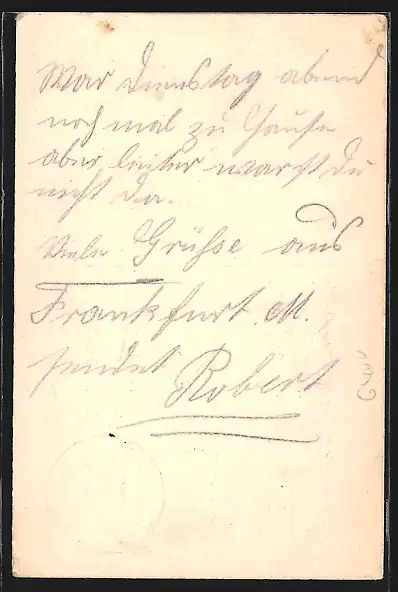 War Dienstag abend
noch mal zu Hause
aber leider warst Du
nicht da.
Viele Grüße aus
Frankfurt. M.
sendet
Robert